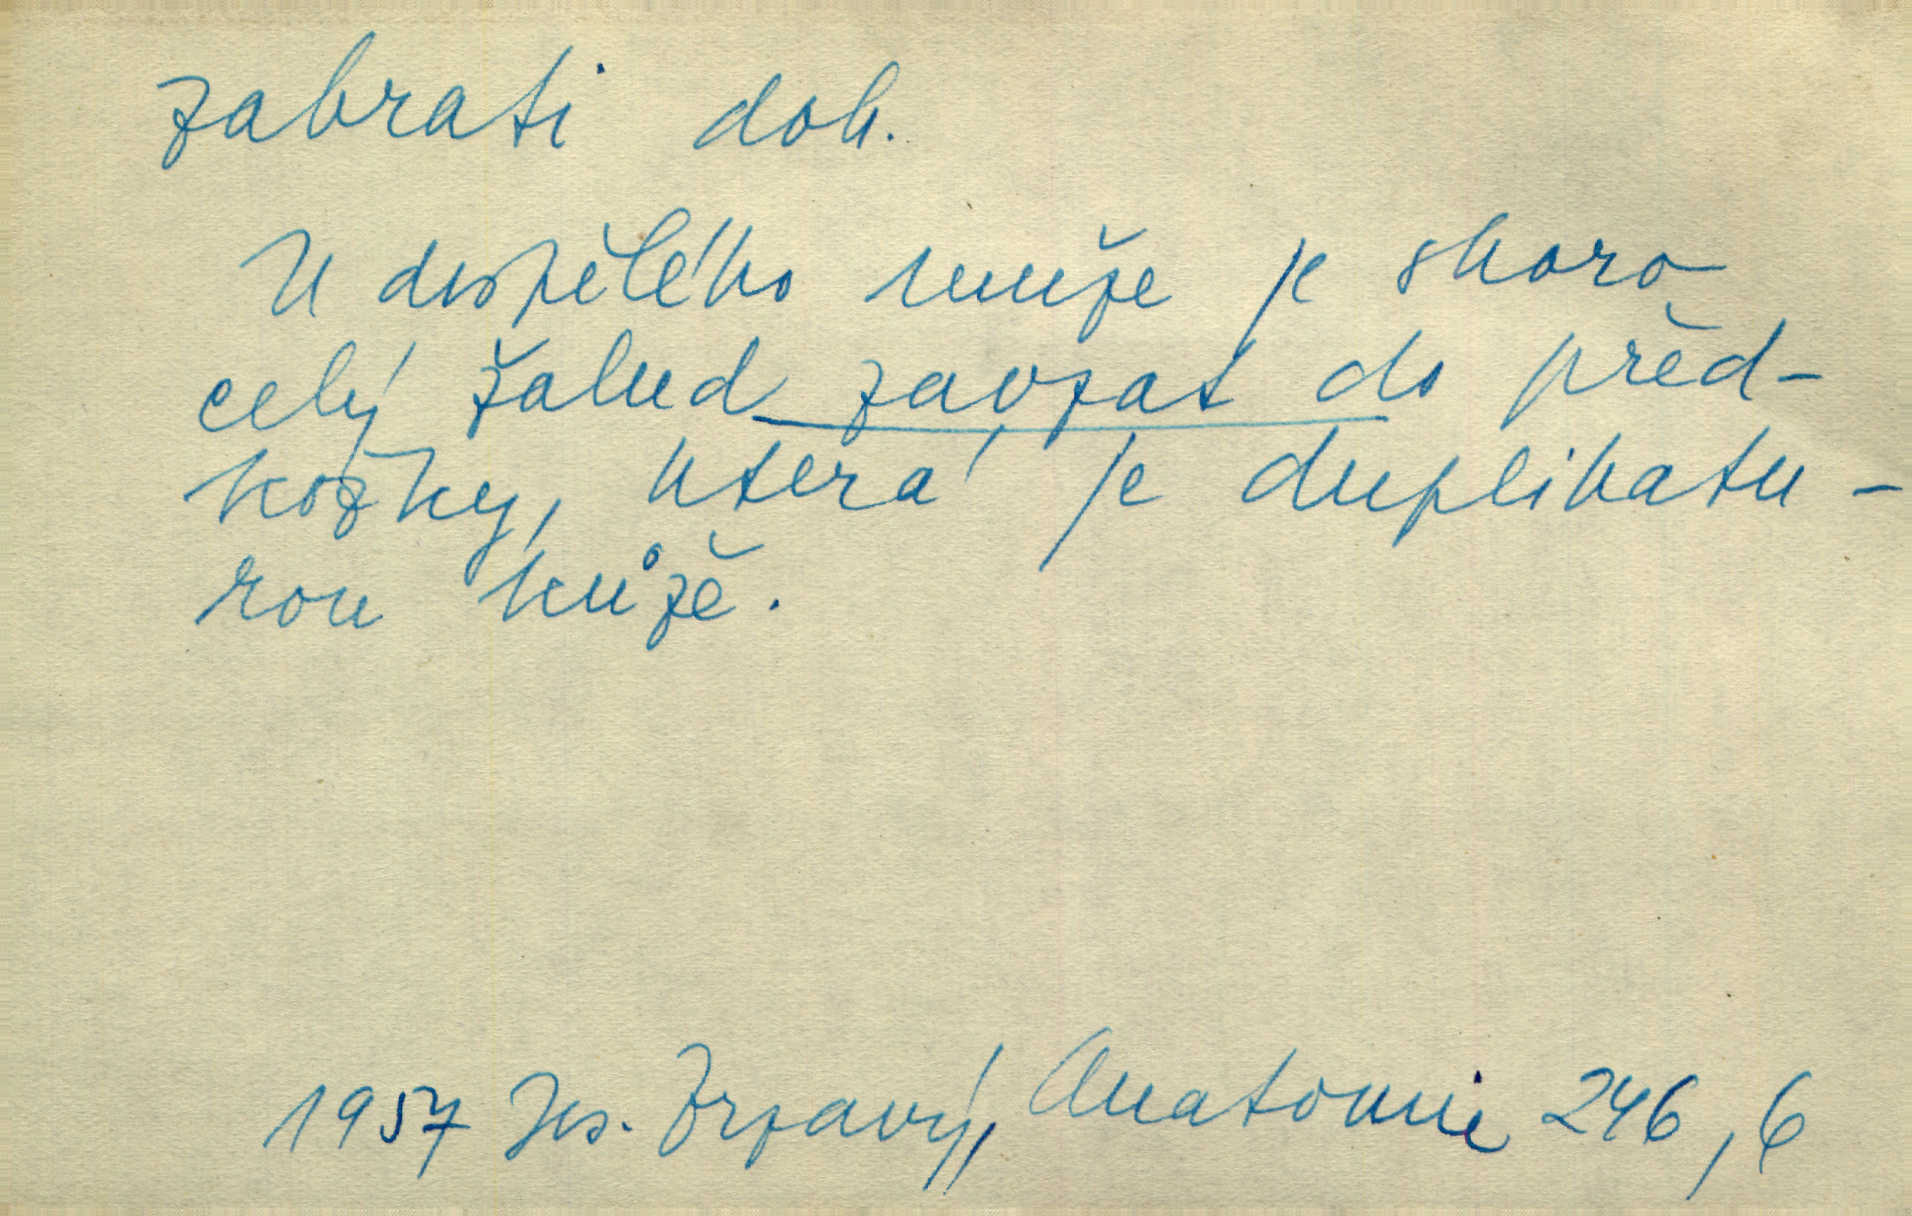 zabrati dok.
U dospělého muže je skoro
celý žalud zavzat do před-
kožky, která je duplikatu-
rou kůže.
1957 Jos. Zrzavý, Anatomie 246, 6